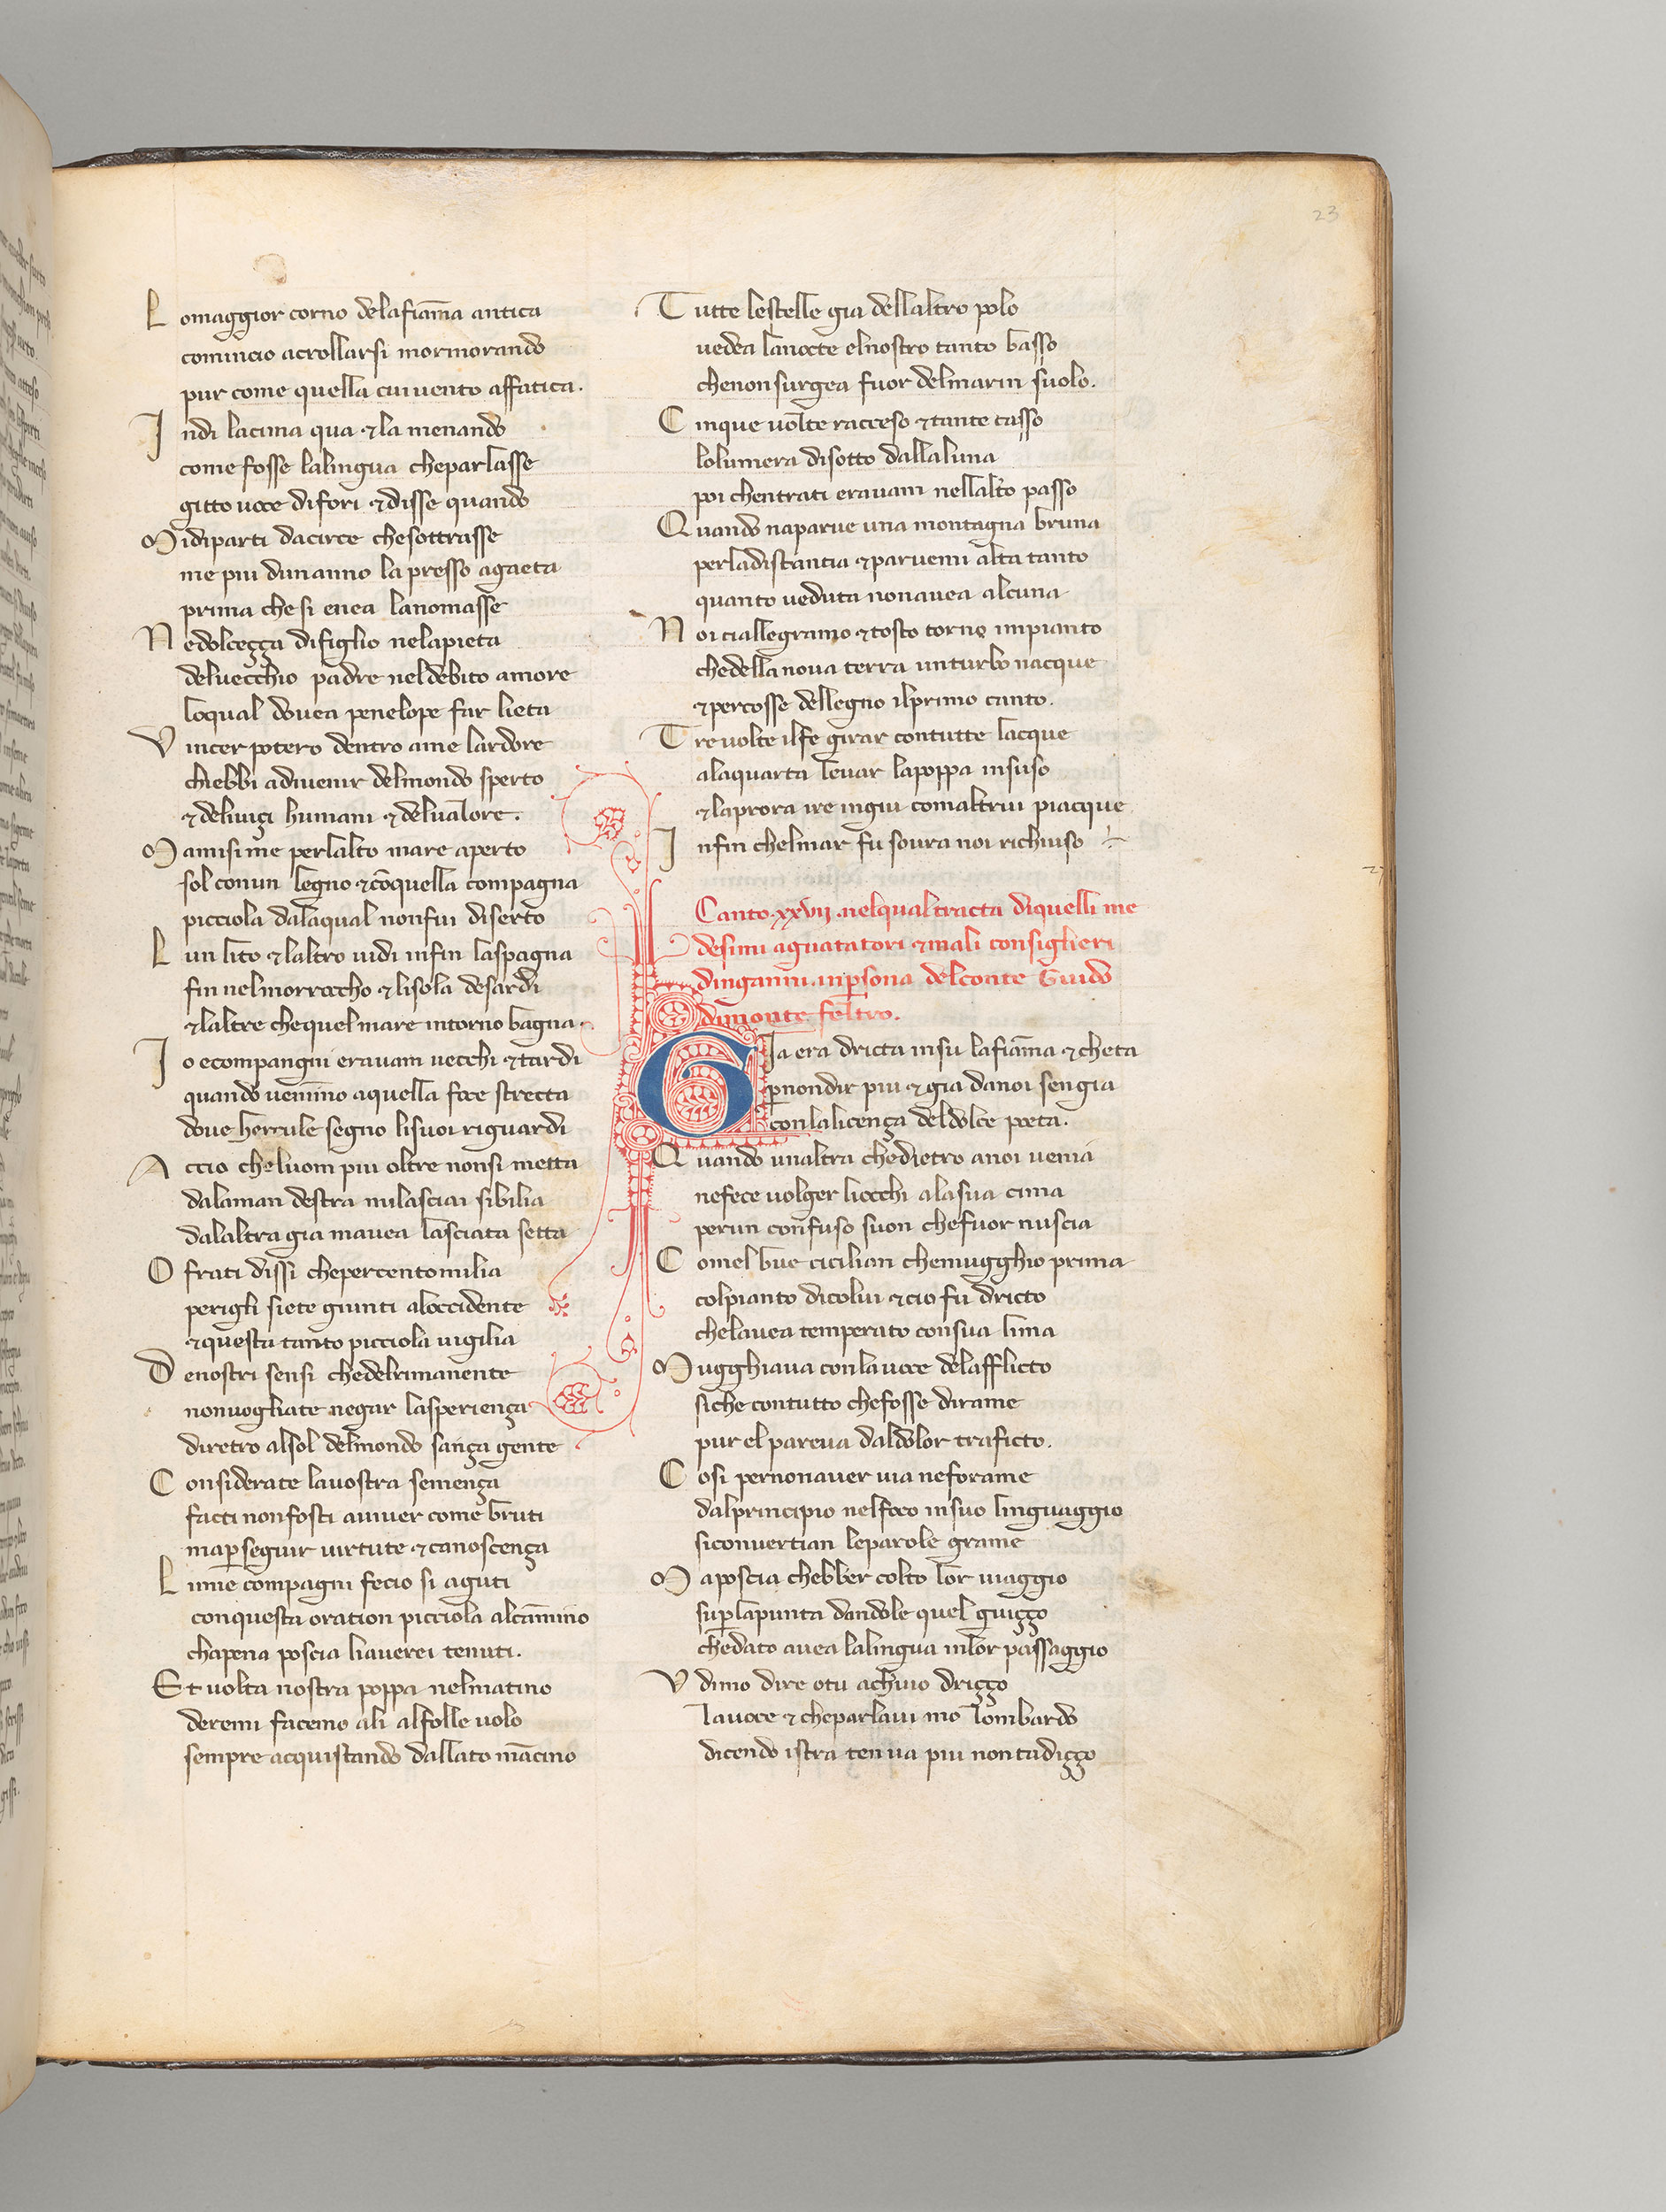 23
Lo maggior corno delafiāma antica
comincio acrollarsi mormorando
pur come quella cui uento affatica.
Indi lacima qua ⁊ la menando
come fosse lalingua cheparlasse
gitto uoce difori ⁊ disse quando
Midiparti dacirce chesottrasse
me piu dunanno la presso agaeta
prima che si enea lanomasse
Nedolceçça difiglio nelapieta
deluecchio padre neldebito amore
loqual douea penelope far lieta
Vincer potero dentro ame lardore
chebbi adiuenir delmondo sperto
⁊ deliuiçi humani ⁊ delualore.
Mamisi me perlalto mare aperto
sol conun legno ⁊ cōquella compagna
picciola dalaqual nonfui diserto
Lun lito ⁊ laltro uidi infin laspagna
fin nelmorroccho ⁊ lisola desardi
⁊ laltre chequel mare intorno bagna.
Io ecompangni erauam uecchi ⁊ tardi
quando uenimo aquella foce strecta
doue hercule segno lisuoi riguardi
Accio cheluom piu oltre nonsi metta
dalaman destra milasciai sibilia
dalaltra gia mauea lasciata setta
O frati dissi chepercentomilia
perigli siete giunti aloccidente
⁊ questa tanto picciola uigilia
Denostri sensi chedelrimanente
nonuogliate negar lasperiença
diretro alsol delmondo sança gente
Considerate lauostra semença
facti nonfosti auiuer come bruti
map̱seguir uirtute ⁊ canoscença
Limie compagni fecio si aguti
conquesta oration picciola alcāmino
chapena poscia liauerei tenuti.
Et uolta nostra poppa nelmatino
deremi facemo ali alfolle uolo
sempre acquistando dallato mācino
Tutte lestelle gia dellaltro polo
uedea lanocte elnostro tanto basso
chenonsurgea fuor delmarin suolo.
Cinque uolte racceso ⁊ tante casso
lolumera disotto dallaluna
poi chentrati erauam nellalto passo
Quando naparue una montagna bruna
perladistantia ⁊ paruemi alta tanto
quanto ueduta nonauea alcuna
Noi ciallegramo ⁊ tosto torno impianto
chedella noua terra unturbo nacque
⁊ percosse dellegno ilprimo canto.
Tre uolte ilfe girar contutte lacque
alaquarta leuar lapoppa insuso
⁊ laprora ire ingiu comaltrui piacque
Infin chelmar fu soura noi richiuso
Canto.xxvij.nelqual tracta diquelli me
desimi aguatatori ⁊ mali consiglieri
dinganni.inp̱sona delconte Guido
dimonte feltro.
Gia era dricta insu lafiāma ⁊ cheta
p̱nondir piu ⁊ gia danoi sengia
conlalicença deldolce poeta.
Quando unaltra chedietro anoi uenia
nefece uolger liocchi alasua cima
perun confuso suon chefuor nuscia
Comel bue cicilian chemugghio prima
colpianto dicolui ⁊ cio fu dricto
chelauea temperato consua lima
Mugghiaua conlauoce delafflicto
siche contutto chefosse dirame
pur el pareua daldolor traficto.
Cosi pernonauer uia neforame
dalprincipio nelfoco insuo linguaggio
siconuertian leparole grame
Maposcia chebber colto lor uiaggio
sup̱lapunta dandole quel guiçço
chedato auea lalingua inlor passaggio
Vdimo dire otu achuio driçço
lauoce ⁊ cheparlaui mo lombardo
dicendo istra ten ua piu nontadiçço